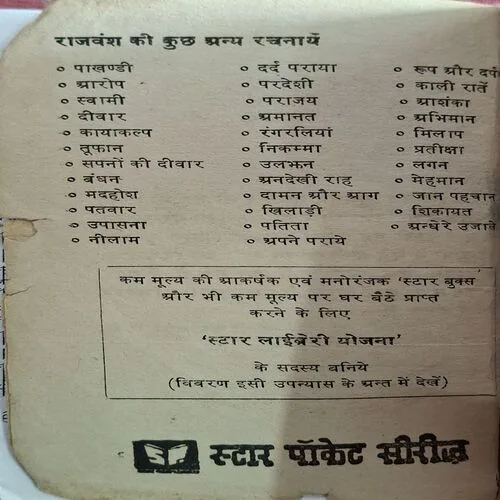 राजवंश की कुछ अन्य रचनायें
० पाखण्डी ० दर्द पराया ० रूप और दर्प
० आरोप ० परदेशी ० काली रातें
० स्वामी ० पराजय ० आशंका
० दीवार ० अमानत ० अभिमान
० कायाकल्प ० रंगरलियां ० मिलाप
० तूफान ० निकम्मा ० प्रतीक्षा
० सपनों की दीवार ० उलझन ० लगन
० बंधन ० अनदेखी राह ० मेहमान
० मदहोश ० दामन और आग ० जान पहचान
० पतवार ० खिलाड़ी ० शिकायत
० उपासना ० पतिता ० अन्धेरे उजाले
० नीलाम ० अपने पराये
कम मूल्य की आकर्षक एवं मनोरंजक 'स्टार बुक्स'
और भी कम मूल्य पर घर बैठे प्राप्त
करने के लिए
'स्टार लाईब्रेरी योजना'
के सदस्य बनिये
(विवरण इसी उपन्यास के अन्त में देखें)
स्टार पॉकेट सीरीज़